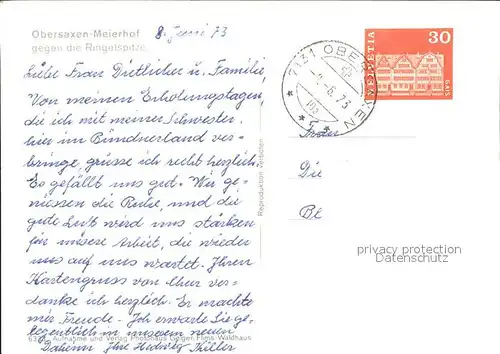 Obersaxen-Meierhof
gegen die Ringelspitze
8. Juni 73
Liebe Frau Dietlicher u. Familie,
Von meinen Erholungstagen,
die ich mit meiner Schwester,
hier im Bündnerland ver-
bringe, grüsse ich recht herzlich.
Es gefällt uns gut. Wir ge-
niessen die Ruhe, und die
gute Luft wird uns stärken
für unsere Arbeit, die wieder
uns auf uns wartet. Ihren
Kartengruss von Chur ver-
danke ich herzlich. Er machte
mir Freude. Ich erwarte Sie ge-
legentlich in unserem neuen
Daheim Ihre Hedwig Keller
Aufnahme und Verlag Photohaus Geiger, Flims-Waldhaus
Reproduktion verboten
7131 OBERSAXEN
6.73
HELVETIA
30
GAIS
Die
Be
privacy protection
Datenschutz